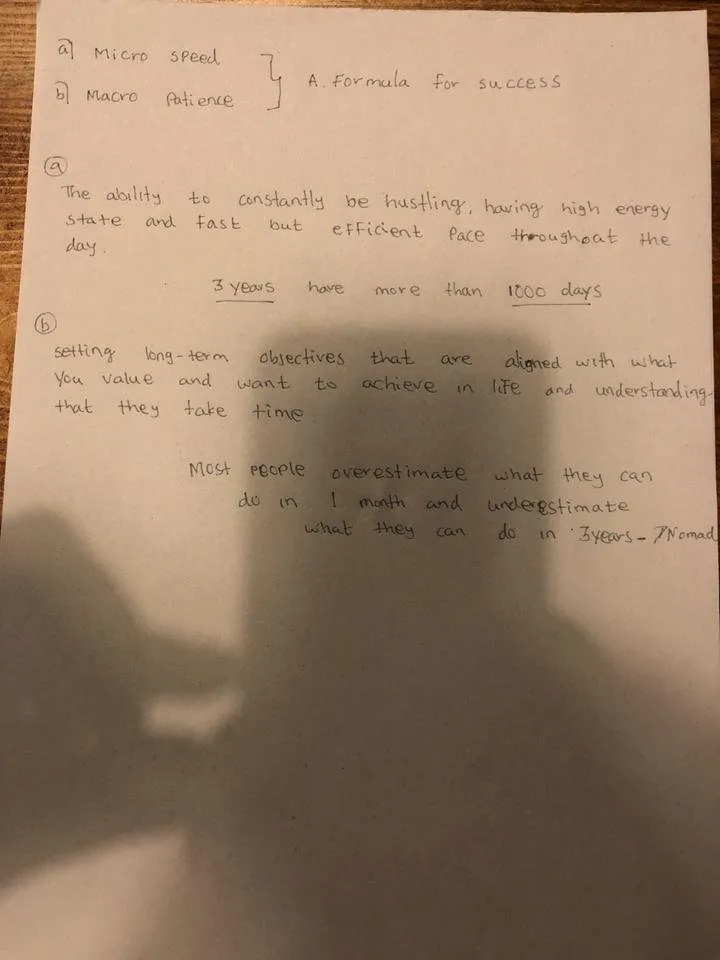 a) Micro speed
b) Macro Patience
A. Formula for success
a
The ability to constantly be hustling, having high energy
state and fast but efficient pace throughout the
day.
3 years have more than 1000 days
b
setting long-term objectives that are aligned with what
You value and want to achieve in life and understanding
that they take time.
Most people overestimate what they can
do in 1 month and underestimate
what they can do in 3years - 7Nomad